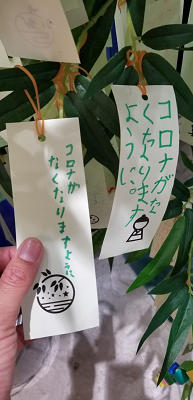 コロナがな
くなります
ように。
コロナが
なくなりますように